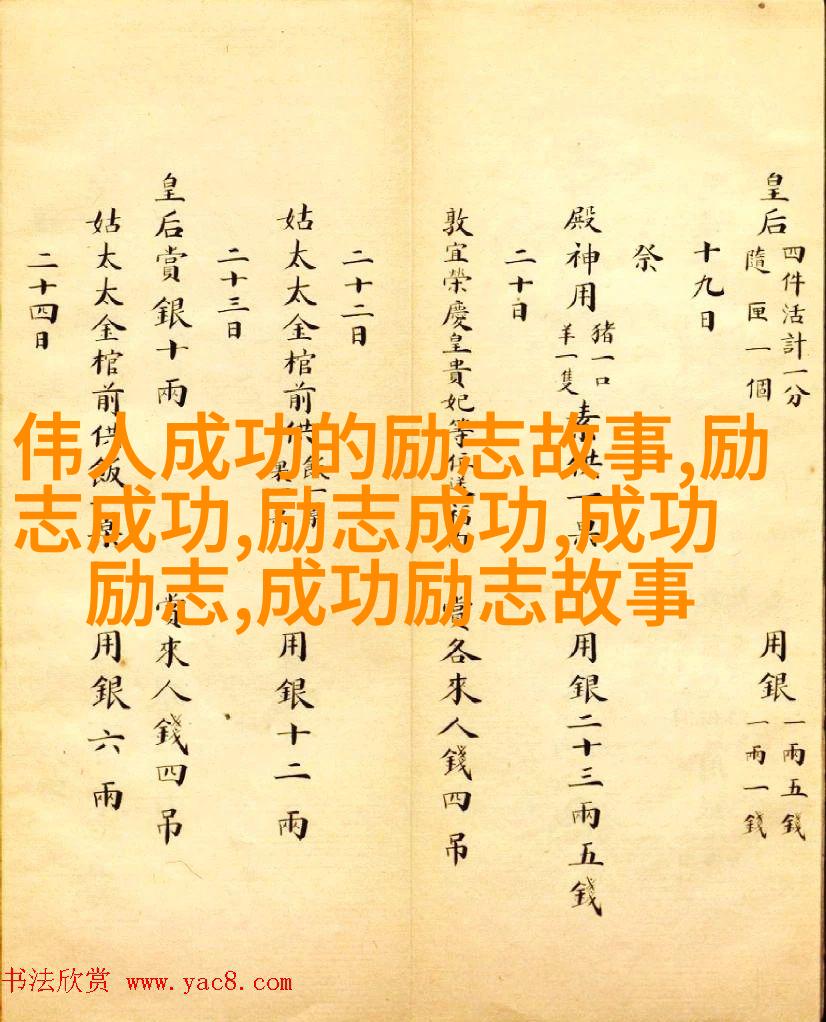 皇后 四件活計一分 隨匣一個 用銀 一兩五錢 一兩一錢
十九日
祭
殿神用 豬一口 羊一隻 素供一桌 用銀二十三兩五錢
二十日
敦宜榮慶皇貴妃等 賞各來人錢四吊
二十二日
姑太太金棺前供 用銀十二兩
二十三日
皇后賞銀十兩 賞來人錢四吊
姑太太金棺前供飯一桌 用銀六兩
二十四日
伟人成功的励志故事,励
志成功,励志成功,成功
励志,成功励志故事
书法欣赏 www.yac8.com